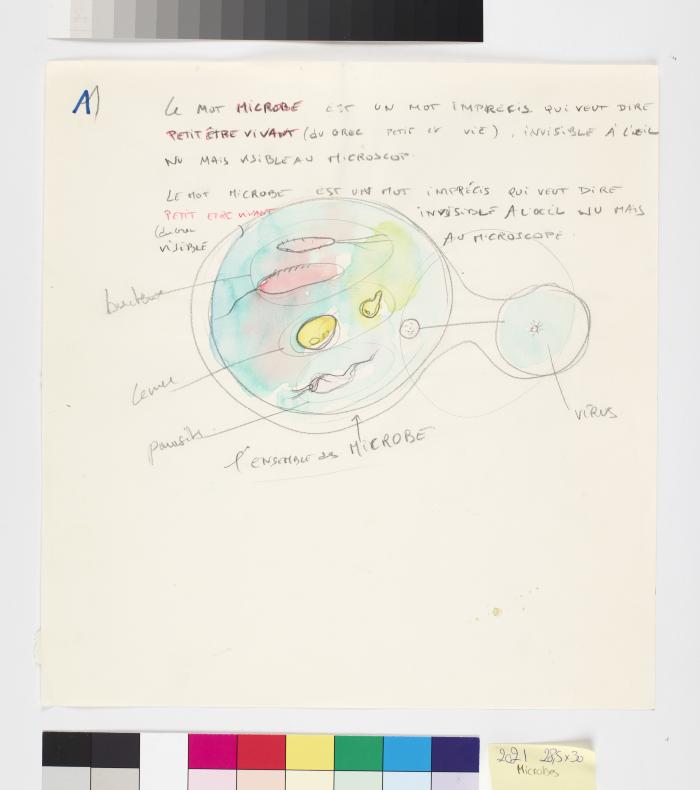 A)
LE MOT MICROBE EST UN MOT IMPRÉCIS QUI VEUT DIRE
PETIT ÊTRE VIVANT (DU GREC PETIT ET VIE), INVISIBLE À L'ŒIL
NU MAIS VISIBLE AU MICROSCOP.
LE MOT MICROBE EST UN MOT IMPRÉCIS QUI VEUT DIRE
PETIT ETRE VIVANT INVISIBLE A L'ŒIL NU MAIS
(du Grec
VISIBLE AU MICROSCOPE.
bacterie
Levure
parasite
VIRUS
l'ENSEMBLE des MICROBE
2021 28,5x30
Microbes